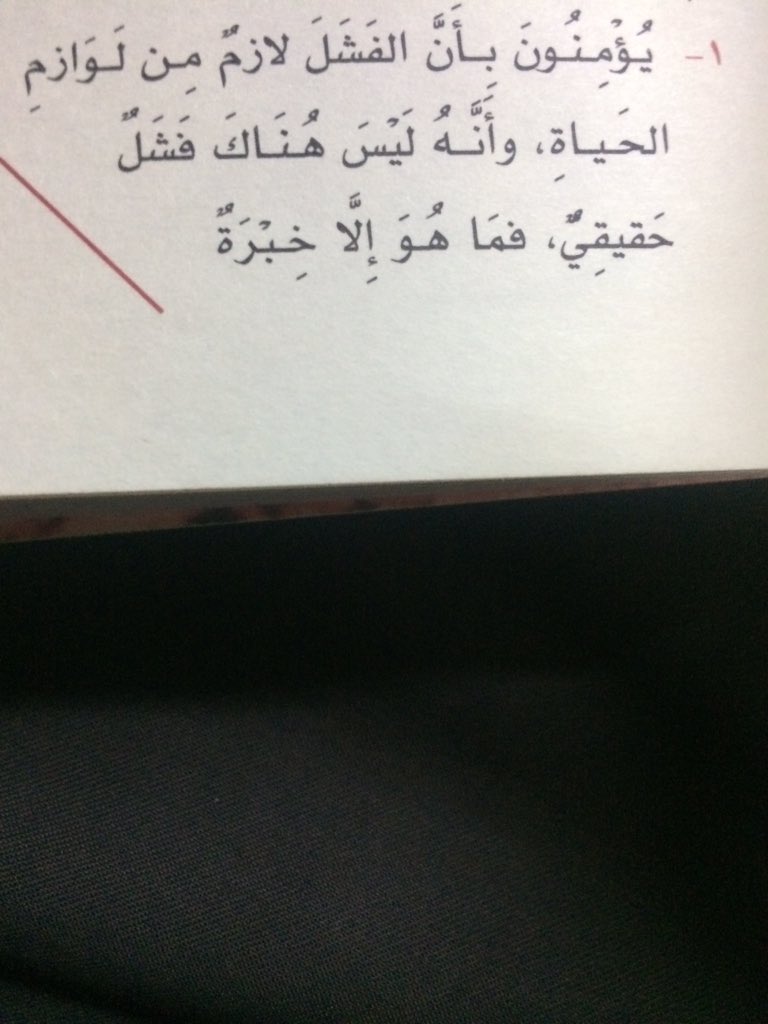 ١- يُؤْمِنُونَ بِأَنَّ الفَشَلَ لازمٌ مِن لَوَازمِ
الحَياةِ، وأَنَّهُ لَيْسَ هُنَاكَ فَشَلٌ
حَقيقِيٌّ، فمَا هُوَ إِلَّا خِبْرَةٌ